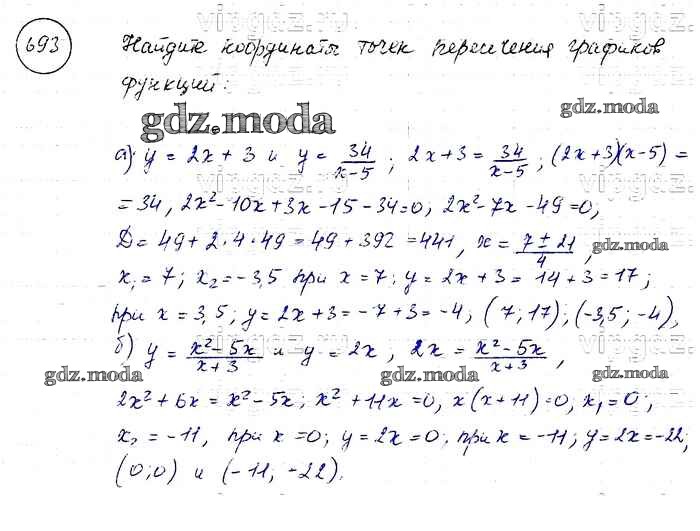 693
Найдите координаты точек пересечения графиков
функций:
gdz.moda
gdz.moda
а) y = 2x + 3 и y = 34/(x-5); 2x+3 = 34/(x-5); (2x+3)(x-5) =
= 34, 2x²-10x+3x-15-34=0, 2x²-7x-49=0,
D = 49+2·4·49 = 49+392 = 441, x = (7±21)/4,
gdz.moda
x₁ = 7; x₂ = -3,5 при x = 7: y = 2x + 3 = 14+3 = 17;
при x = 3,5; y = 2x+3 = -7+3 = -4, (7; 17); (-3,5; -4),
б) y = (x²-5x)/(x+3) и y = 2x, 2x = (x²-5x)/(x+3),
gdz.moda gdz.moda gdz.moda
2x²+6x = x²-5x; x²+11x = 0, x(x+11)=0, x₁=0;
x₂ = -11, при x=0; y=2x=0; при x=-11; y=2x=-22;
(0;0) и (-11; -22).